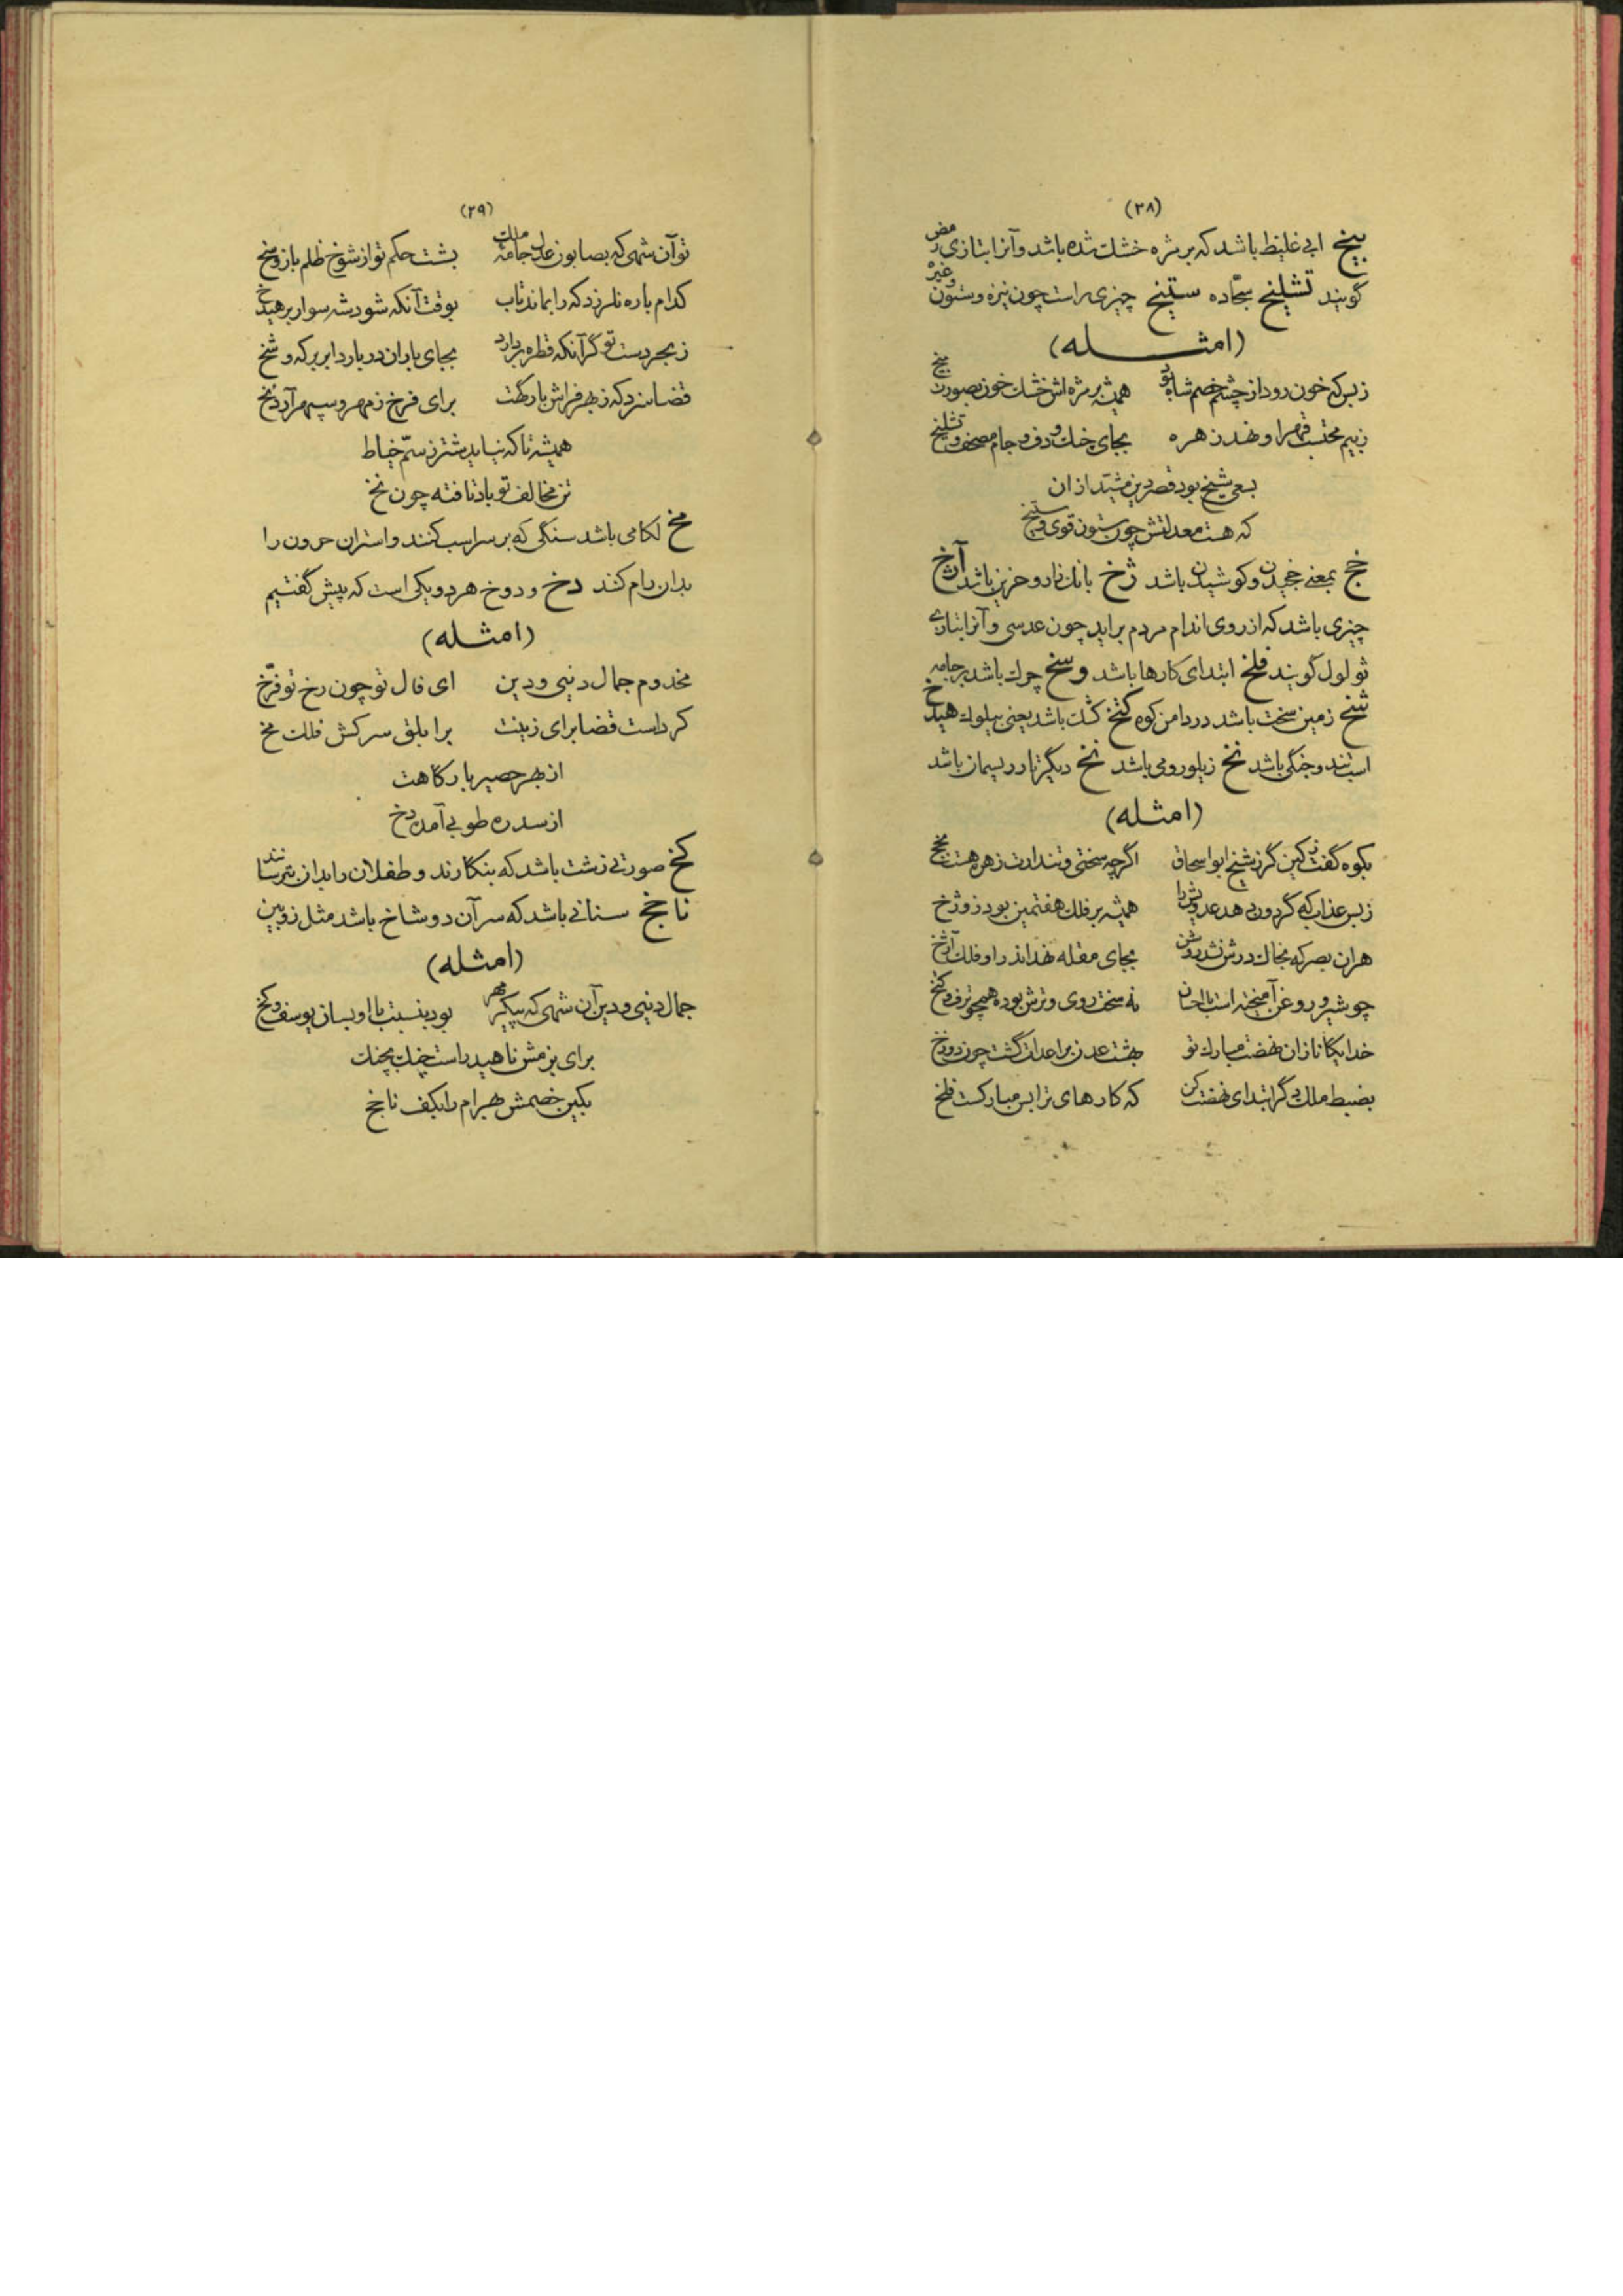 (۳۸)
پیخ ابی غلیظ باشد که بر مژه خشک شده باشد و آنرا بتازی رمض
گویند تشلیخ سجّاده ستیخ چیزی راست چون نیزه و ستون وغیره
(امثله)
ز بس که خون رود از چشم خصم شاه تو همیشه بر مژه اش خشک خون بصورت پیخ
ز بیم محتسب قهر او نهد زهره بجای چنک و دف و جام مصحف و تشلیخ
بسعی شیخ بود قصر دین مشید از ان
که هست معدلتش چون ستون قوی و ستیخ
خج بمعنی خجیدن و کوشیدن باشد ژخ بانک نار و حزین باشد آژخ
چیزی باشد که از روی اندام مردم براید چون عدسی و آنرا بتازی
ثولول گویند فلخ ابتدای کارها باشد وسخ چرک باشد بر جامه
شخ زمین سخت باشد در دامن کوه کتخ کشک باشد یعنی پیلوک هیدخ
اسب تند و جنگی باشد نخ زیلو رومی باشد نخ دیگر تار ریسمان باشد
(امثله)
بکوه گفت کین گرز شیخ ابو اسحاق اگرچه سختی و تندارت زهره هست
ز بس عذاب که گردون دهد عدویش را همیشه بر فلک هفتمین بود ز و ژخ
هران بصر که بخاک درش نشد روشن بجای مقله نهد اندر او فلک آژخ
چو شیر و روغن آمیخته است با احسان نه سخت روی و ترش بوده همچو ترف و کتخ
خدایکانا زان نهضت مبارک تو بهشت عدن بر اعدات گشت چون دوزخ
بضبط ملک دگر ابتدای نهضت کن که کارهای ترا بس مبارکست فلخ
(۲۹)
تو آن شهی که بصابون عدل جامۀ ملک بشست حکم تو از شوخ ظلم باز وسخ
کدام باره نلرزد که را بماند تاب بوقت آنکه شود شه سوار بر هیدخ
ز بحر دست تو گر آنکه قطره بردارد بجای باران در بارد ابر بر که و شخ
قضا سزد که ز بهر فراش بارگهت برای فرخ ز مهر و سپهر آرد نخ
همیشه تا که نیاید شتر ز سمّ خیاط
تن مخالف تو باد تافته چون نخ
مخ لکامی باشد سنگی که بر سر اسب کنند و استران حرون را
بدان رام کنند دخ و دوخ هر دو یکی است که پیش گفتیم
(امثله)
مخدوم جمال دنیی و دین ای فال تو چون رخ تو فرّخ
کرداست قضا برای زینت بر ابلق سرکش فلک مخ
از بهر حصیر بارکاهت
از سدره طوبی آمده دخ
کخ صورتی زشت باشد که بنکارند و طفلان را بدان بترسانند
ناجخ سنانی باشد که سر آن دو شاخ باشد مثل زوبین
(امثله)
جمال دنیی و دین آن شهی که پیکر مهر بود بنسبت با او بسان یوسف و کخ
برای بزمش ناهید راست چنک بچنک
بکین خصمش بهرام را بکف ناجخ